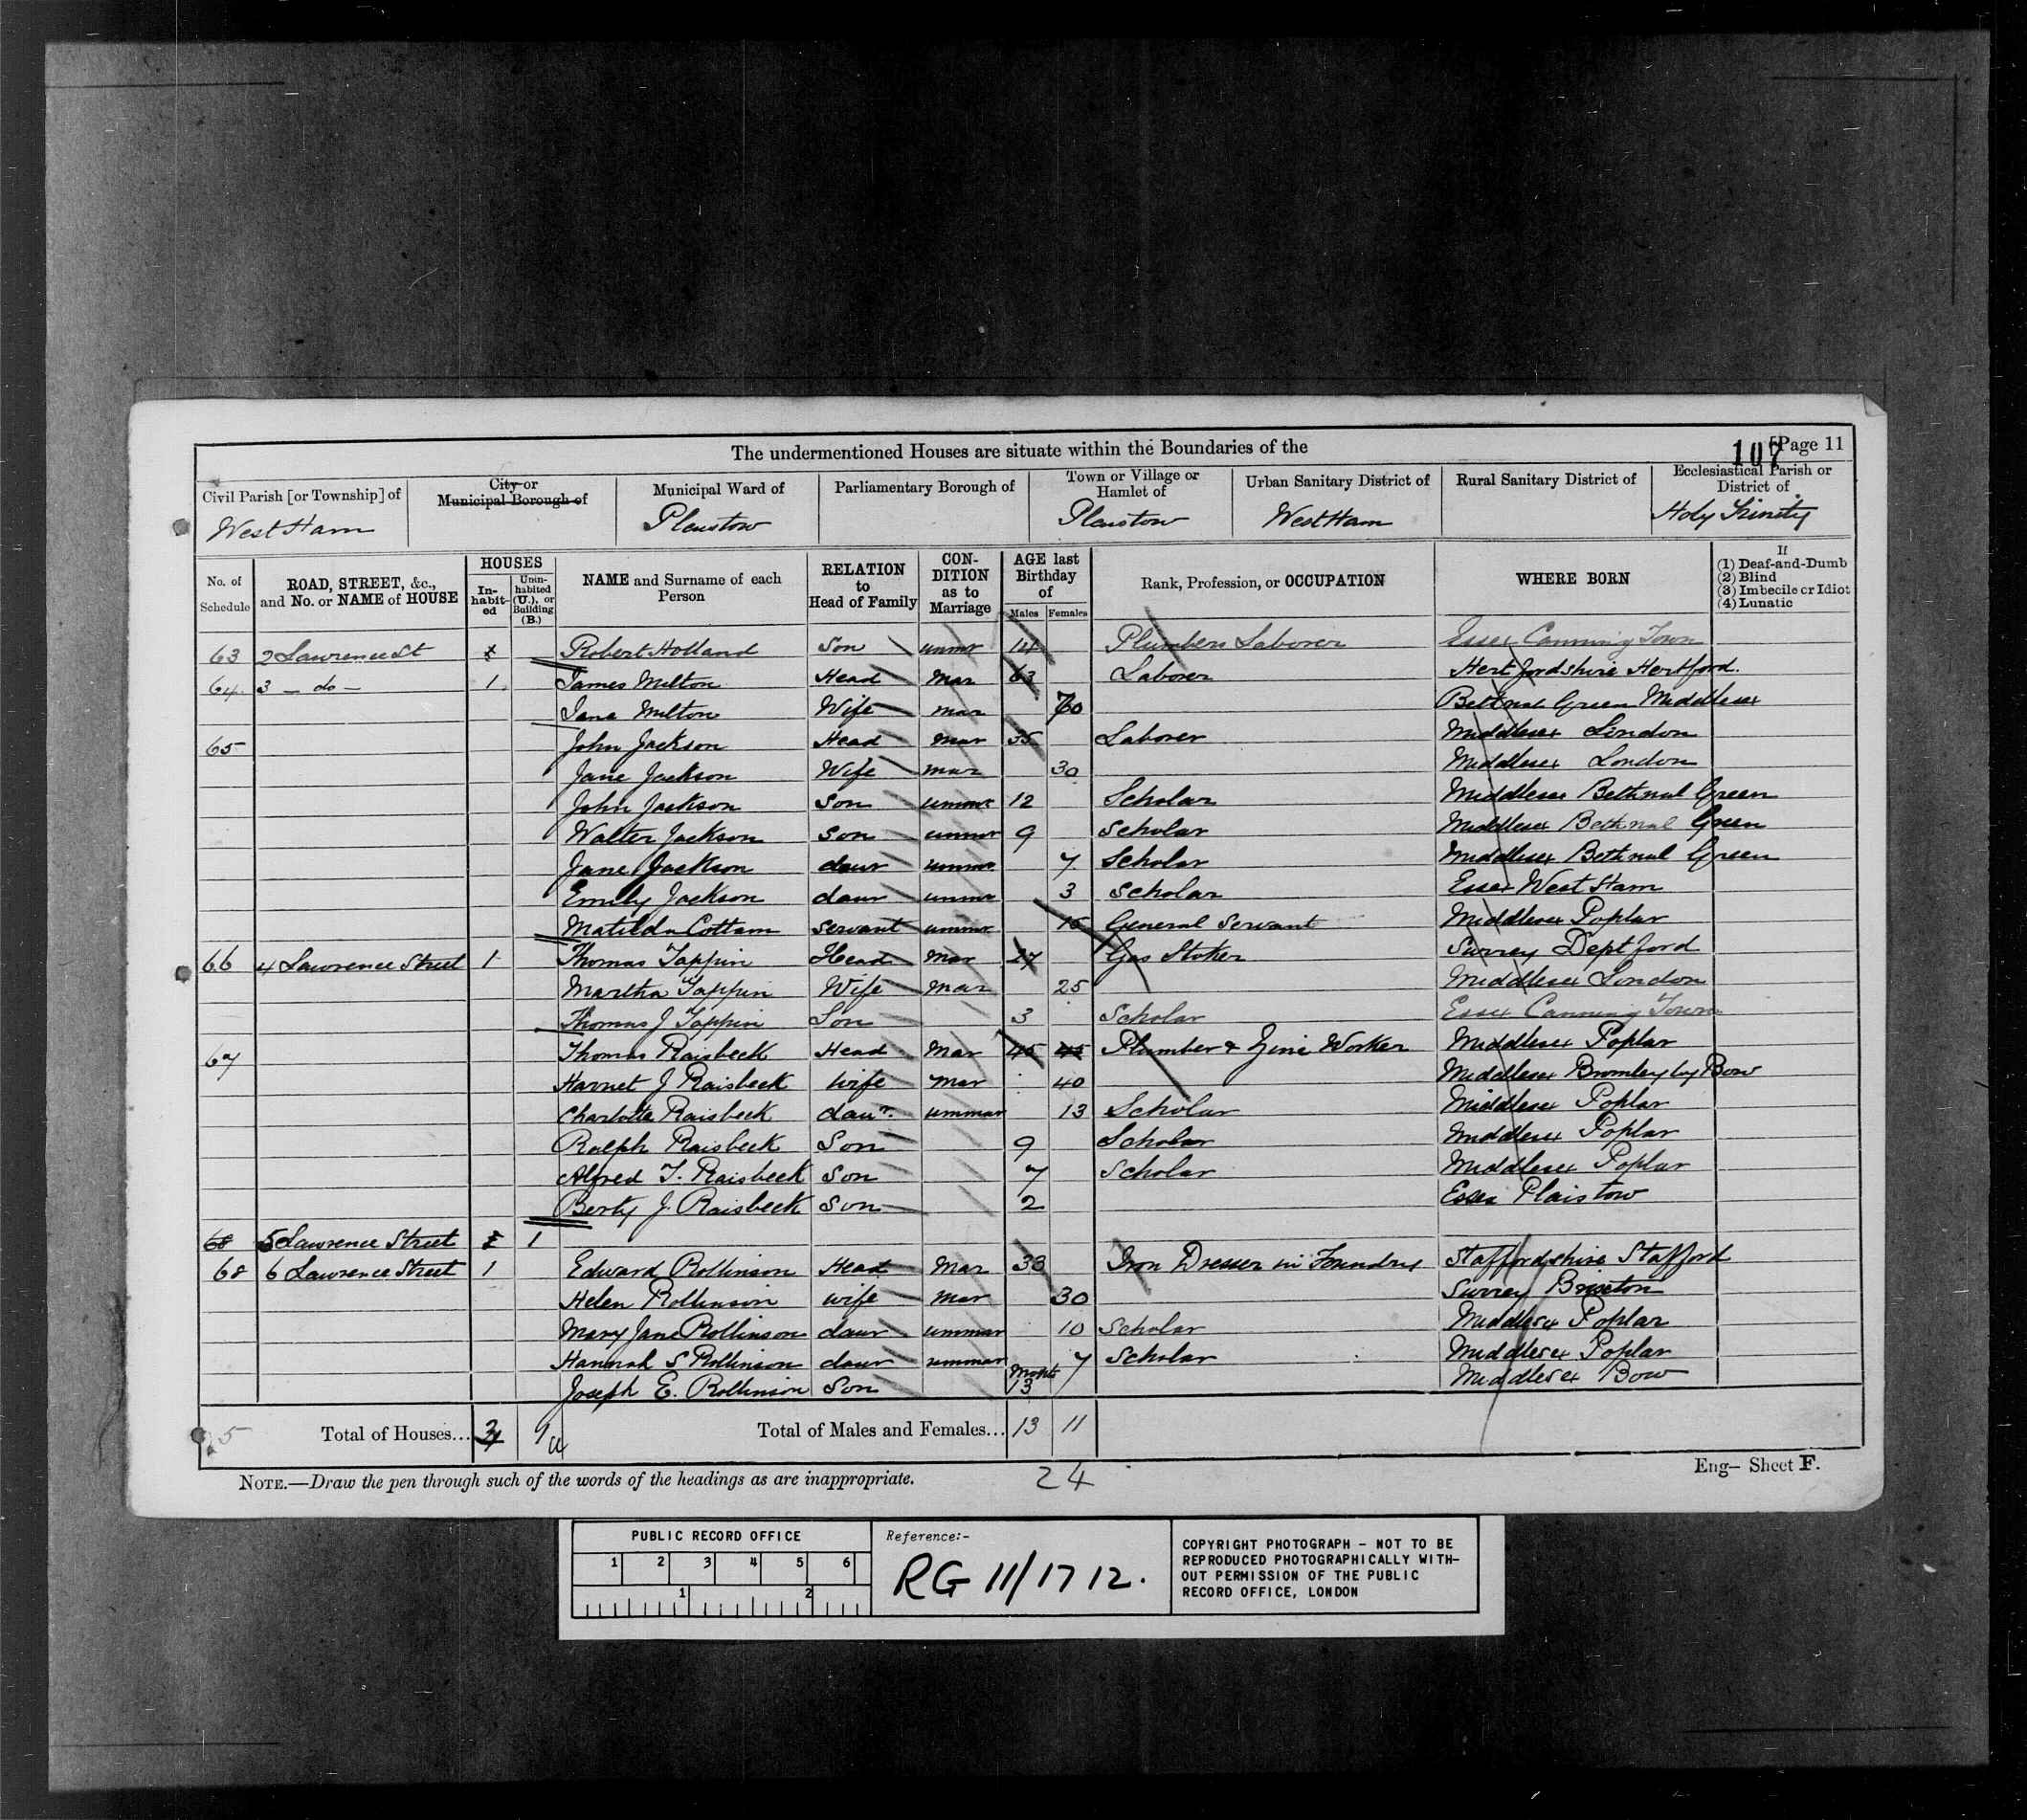 The undermentioned Houses are situate within the Boundaries of the
107
[Page 11
Civil Parish [or Township] of
City or
Municipal Borough of
Municipal Ward of
Parliamentary Borough of
Town or Village or
Hamlet of
Urban Sanitary District of
Rural Sanitary District of
Ecclesiastical Parish or
District of
West Ham
Plaistow
Plaistow
West Ham
Holy Trinity
No. of Schedule
ROAD, STREET, &c., and No. or NAME of HOUSE
HOUSES
In-habit-ed
Unin-habited (U.), or Building (B.)
NAME and Surname of each Person
RELATION to Head of Family
CON-DITION as to Marriage
AGE last Birthday of
Males
Females
Rank, Profession, or OCCUPATION
WHERE BORN
If
(1) Deaf-and-Dumb
(2) Blind
(3) Imbecile or Idiot
(4) Lunatic
63 2 Lawrence St Robert Holland Son unmar 14 Plumbers Laborer Essex Canning Town
64 3 – do – 1 James Milton Head Mar 63 Laborer Hertfordshire Hertford
Jane Milton Wife mar 70 Bethnal Green Middlesex
65 John Jackson Head Mar 35 Laborer Middlesex London
Jane Jackson Wife mar 30 Middlesex London
John Jackson Son unmar 12 Scholar Middlesex Bethnal Green
Walter Jackson Son unmar 9 Scholar Middlesex Bethnal Green
Jane Jackson daur unmar 7 Scholar Middlesex Bethnal Green
Emily Jackson daur unmar 3 Scholar Essex West Ham
Matilda Cottam Servant unmar 15 General Servant Middlesex Poplar
66 4 Lawrence Street 1 Thomas Tappin Head Mar 27 Gas Stoker Surrey Deptford
Martha Tappin Wife Mar 25 Middlesex London
Thomas J Tappin Son 3 Scholar Essex Canning Town
67 Thomas Raisbeck Head Mar 45 45 Plumber & Zinc Worker Middlesex Poplar
Harriet J Raisbeck Wife Mar 40 Middlesex Bromley by Bow
Charlotte Raisbeck daur. unmar 13 Scholar Middlesex Poplar
Ralph Raisbeck Son 9 Scholar Middlesex Poplar
Alfred T. Raisbeck Son 7 Scholar Middlesex Poplar
Berty J. Raisbeck Son 2 Essex Plaistow
68 5 Lawrence Street 1
68 6 Lawrence Street 1 Edward Rollinson Head Mar 33 Iron Dresser in Foundry Staffordshire Stafford
Helen Rollinson Wife Mar 30 Surrey Brixton
Mary Jane Rollinson daur unmar 10 Scholar Middlesex Poplar
Hannah S Rollinson daur unmar 7 Scholar Middlesex Poplar
Joseph E. Rollinson Son Mnths 13 Middlesex Bow
5 Total of Houses... 1 u Total of Males and Females... 13 11
24
NOTE.—Draw the pen through such of the words of the headings as are inappropriate.
Eng– Sheet F.
PUBLIC RECORD OFFICE
1 2 3 4 5 6
1 2
Reference:-
RG 11/1712.
COPYRIGHT PHOTOGRAPH – NOT TO BE
REPRODUCED PHOTOGRAPHICALLY WITH-
OUT PERMISSION OF THE PUBLIC
RECORD OFFICE, LONDON